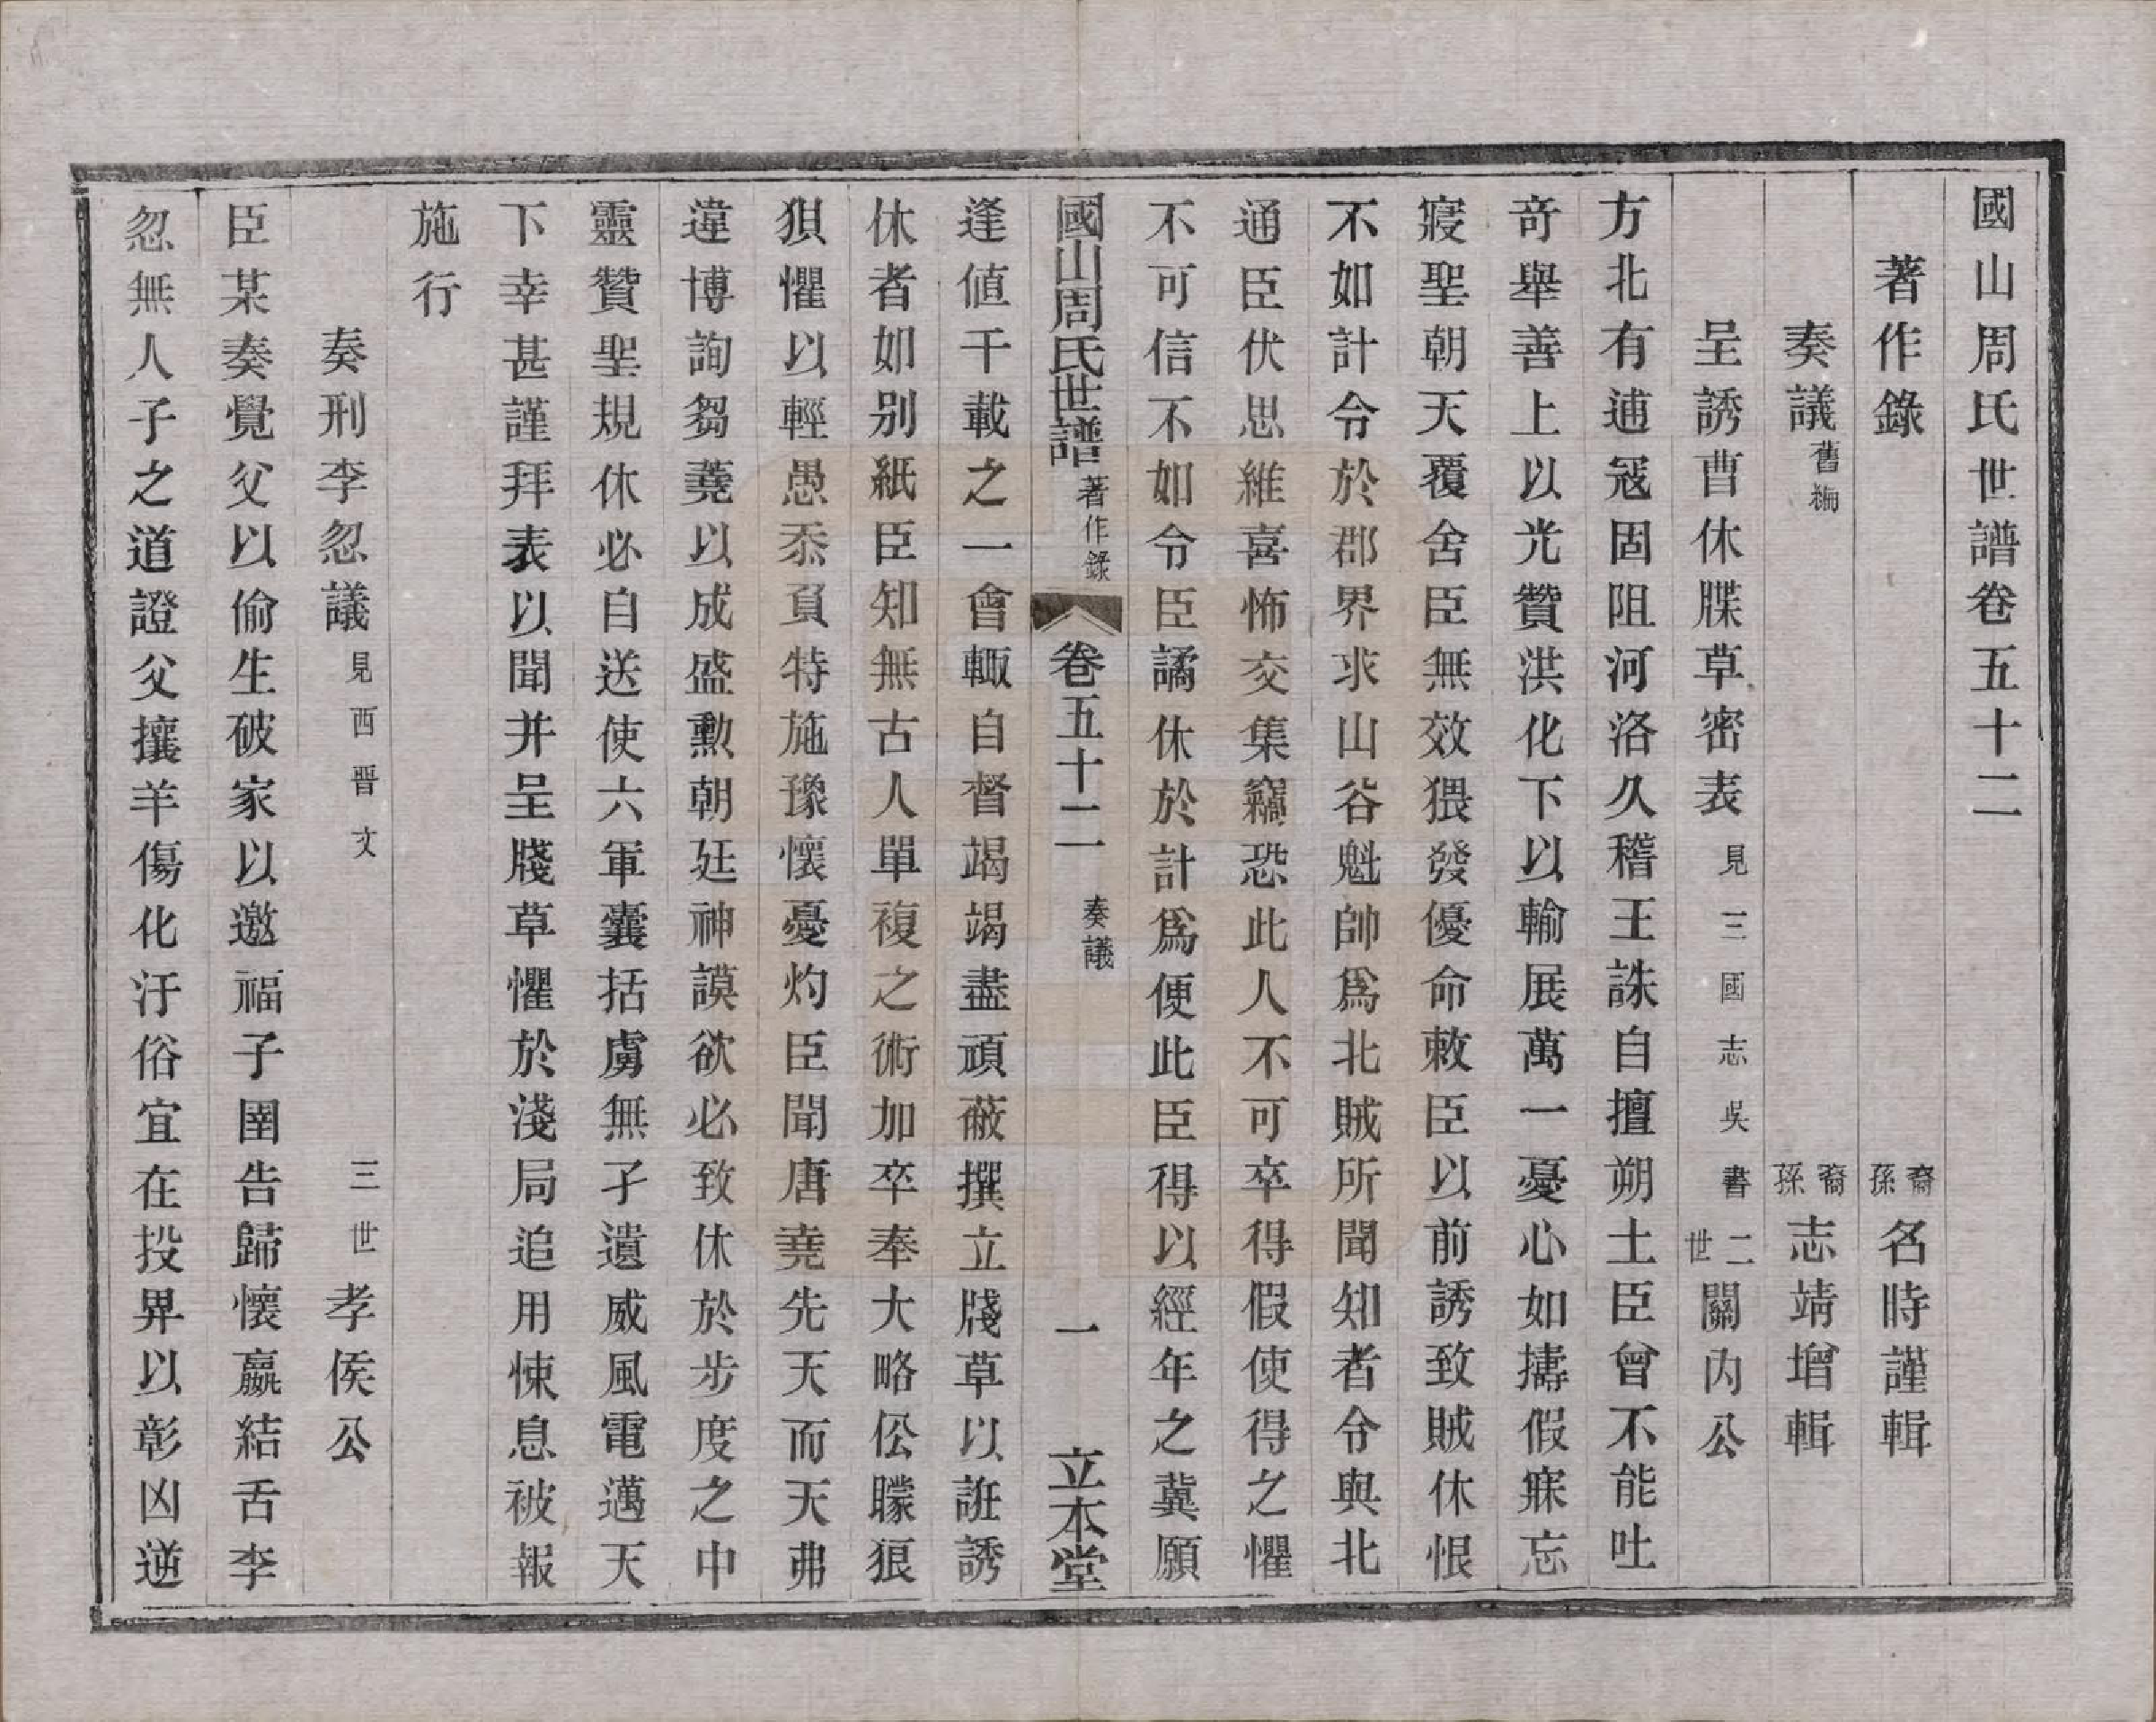 國山周氏世譜卷五十二
著作錄 裔孫名時謹輯
奏議舊編 裔孫志靖增輯
呈誘曹休牒草密表見三國志吳書 二世關內公
方北有逋寇固阻河洛久稽王誅自擅朔土臣曾不能吐
奇舉善上以光贊洪化下以輸展萬一憂心如擣假寐忘
寢聖朝天覆舍臣無效猥發優命敕臣以前誘致賊休恨
不如計令於郡界求山谷魁帥爲北賊所聞知者令與北
通臣伏思維喜怖交集竊恐此人不可卒得假使得之懼
不可信不如令臣譎休於計爲便此臣得以經年之冀願
國山周氏世譜 著作錄 卷五十二 奏議 一 立本堂
逢値千載之一會輒自督竭竭盡頑蔽撰立牋草以誑誘
休者如别紙臣知無古人單複之術加卒奉大略伀矇狠
狽懼以輕愚忝負特施豫懷憂灼臣聞唐堯先天而天弗
違博詢芻蕘以成盛勳朝廷神謨欲必致休於步度之中
靈贊聖規休必自送使六軍囊括虜無孑遺威風電邁天
下幸甚謹拜表以聞并呈牋草懼於淺局追用悚息被報
施行
奏刑李忽議見西晋文 三世孝侯公
臣某奏覺父以偷生破家以邀福子圉告歸懷嬴結舌李
忽無人子之道證父攘羊傷化汙俗宜在投畀以彰凶逆